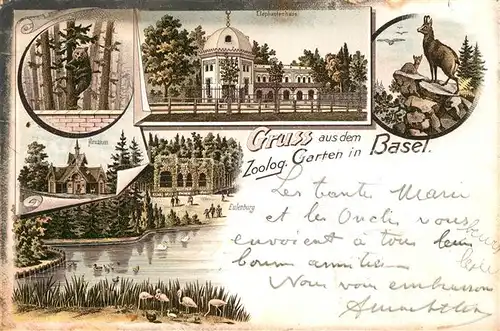 Elephantenhaus
Gruss aus dem
Zoolog. Garten in Basel.
Eulenburg
Les tantes Marie
et les Oncles vous
envoient à tous leur
bonne amitié
Nous vous embrassons